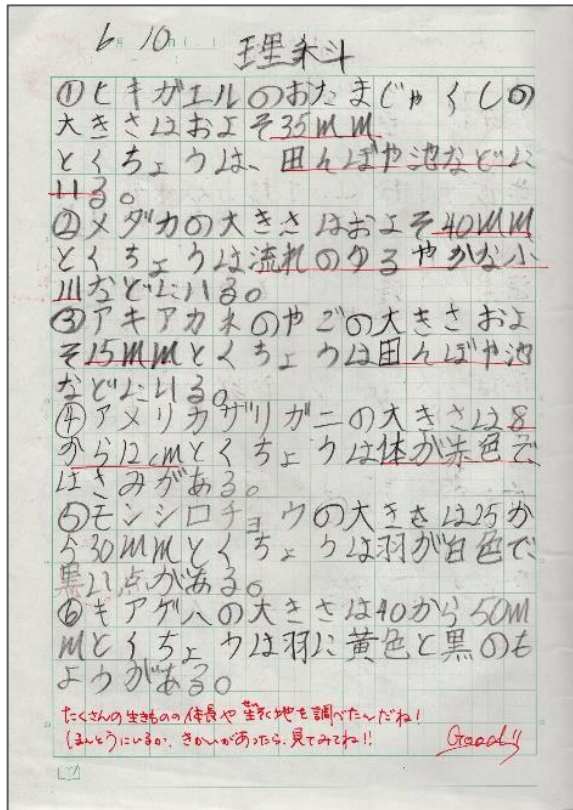 6月10日()
理来斗
①ヒキガエルのおたまじゃくしの
大きさはおよそ35mm
とくちょうは、田んぼや池などに
いる。
②メダカの大きさはおよそ40mm
とくちょうは流れのゆるやかな小
川などにいる。
③アキアカネのやごの大きさおよ
そ15mmとくちょうは田んぼや池
などにいる。
④アメリカザリガニの大きさは8
から12cmとくちょうは体が赤色で
はさみがある。
⑤モンシロチョウの大きさは25か
ら30mmとくちょうは羽が白色で
黒い点がある。
⑥キアゲハの大きさは40から50m
mとくちょうは羽に黄色と黒のも
ようがある。
たくさんの生きものの体長や生そく地を調べたんだね!
ほんとうにいるか、きかいがあったら、見てみてね!!
Good!!